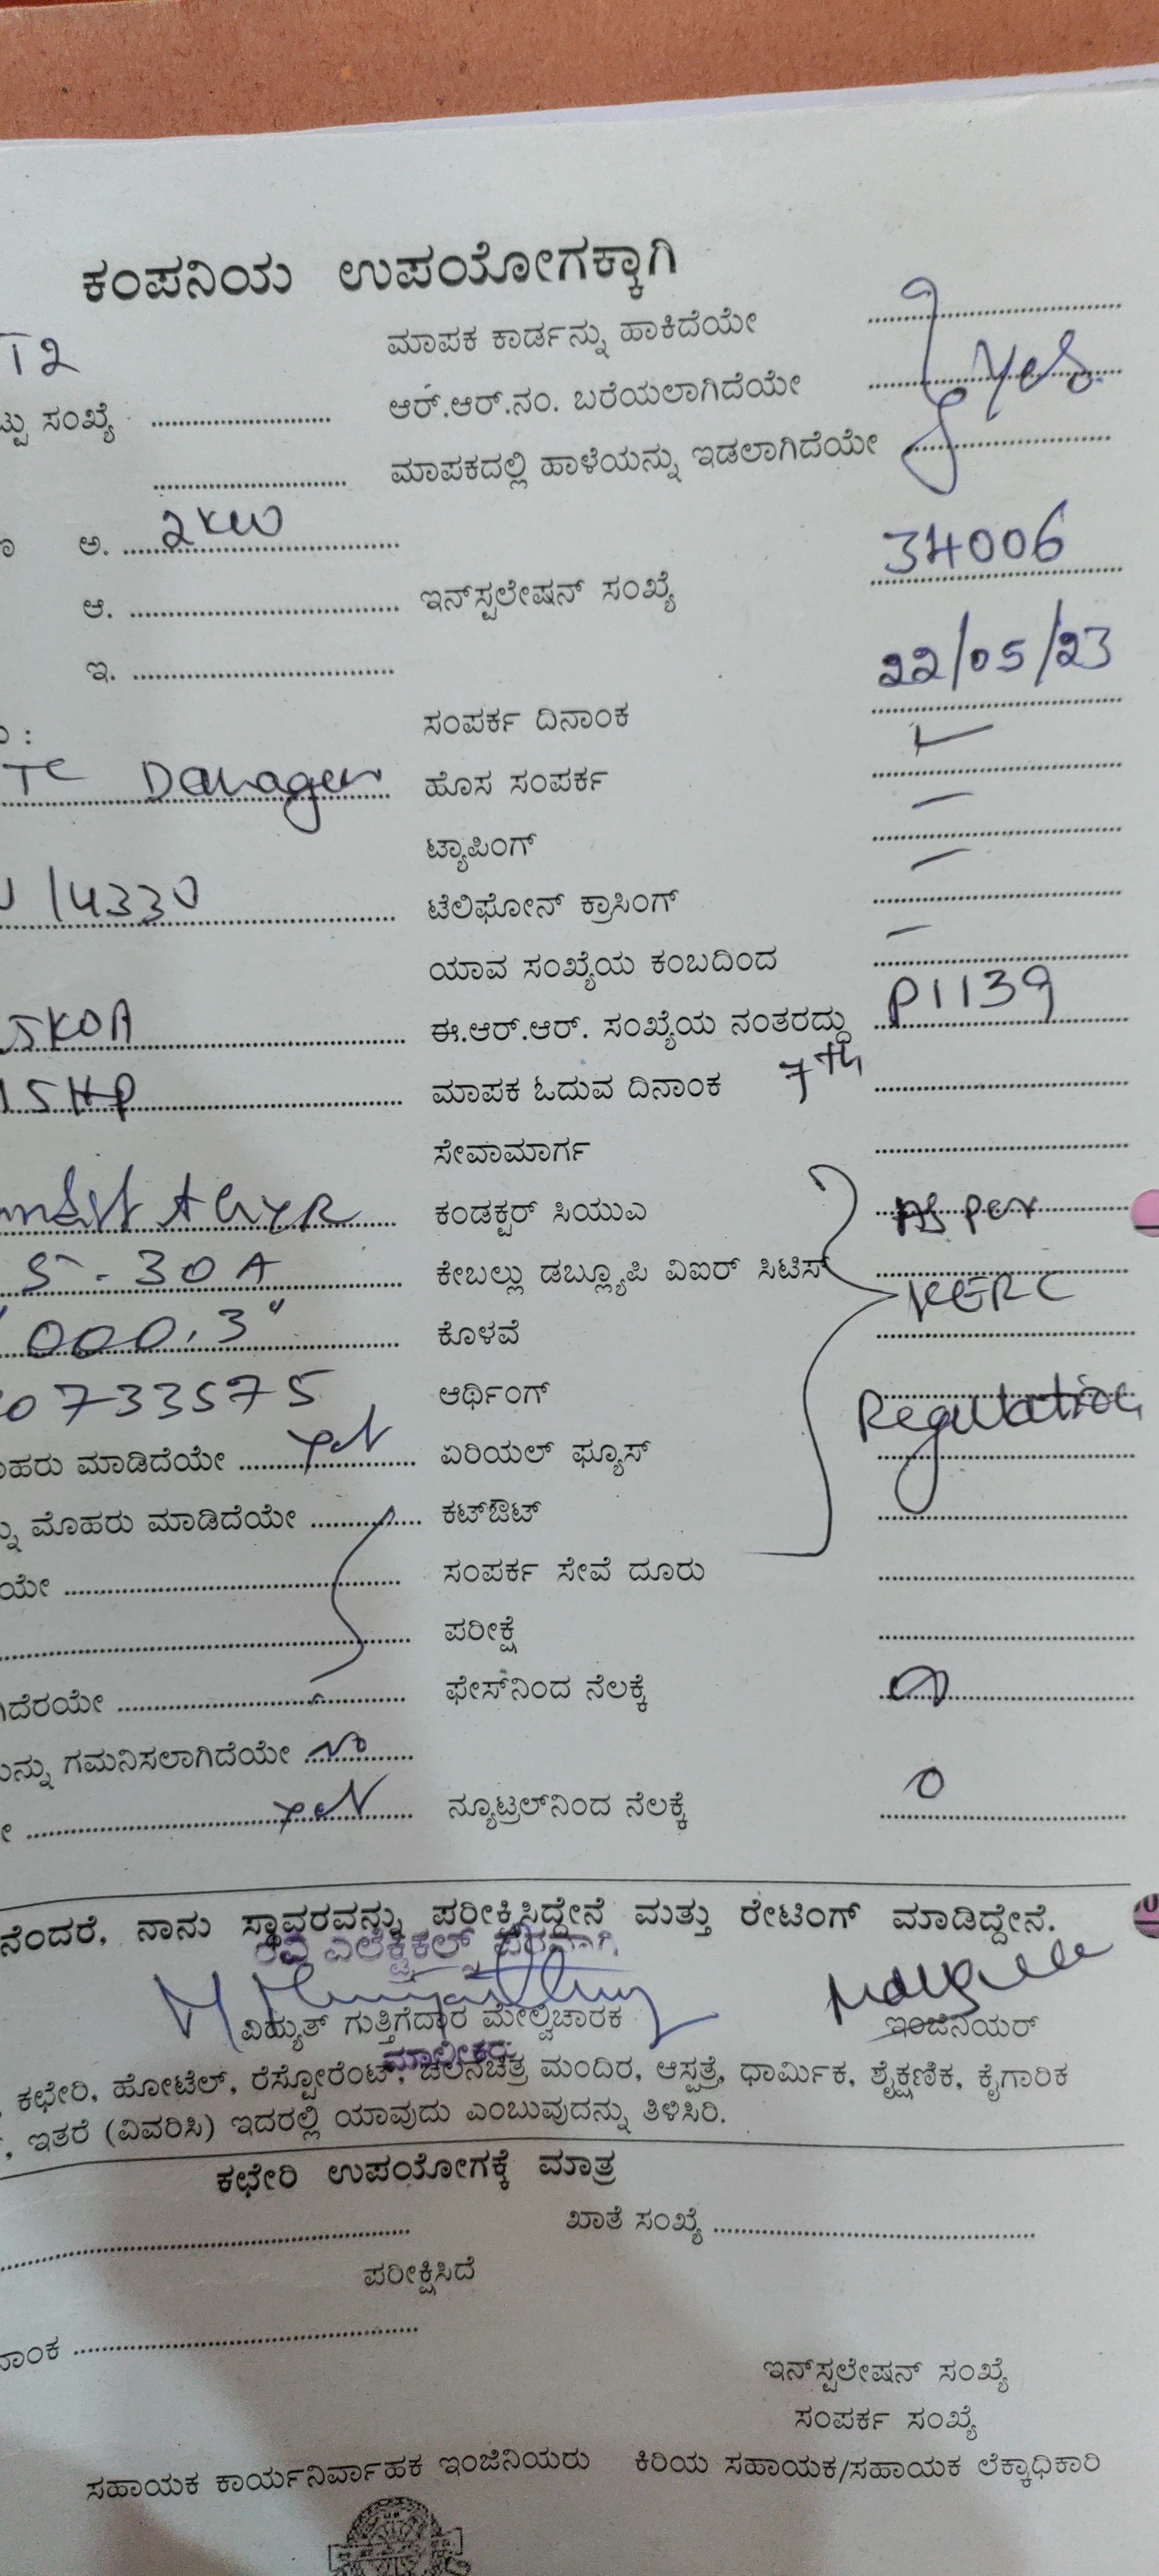 ಕಂಪನಿಯ ಉಪಯೋಗಕ್ಕಾಗಿ
T2 ಮಾಪಕ ಕಾರ್ಡನ್ನು ಹಾಕಿದೆಯೇ
ಸಂಖ್ಯೆ ಆರ್.ಆರ್.ನಂ. ಬರೆಯಲಾಗಿದೆಯೇ Yes
ಮಾಪಕದಲ್ಲಿ ಹಾಳೆಯನ್ನು ಇಡಲಾಗಿದೆಯೇ
ಅ. 2KW 34006
ಆ. ಇನ್‌ಸ್ಟಲೇಷನ್ ಸಂಖ್ಯೆ
ಇ. 22/05/23
ಸಂಪರ್ಕ ದಿನಾಂಕ
TC ಹೊಸ ಸಂಪರ್ಕ
ಟ್ಯಾಪಿಂಗ್ –
14330 ಟೆಲಿಫೋನ್ ಕ್ರಾಸಿಂಗ್ –
ಯಾವ ಸಂಖ್ಯೆಯ ಕಂಬದಿಂದ –
ಈ.ಆರ್.ಆರ್. ಸಂಖ್ಯೆಯ ನಂತರದ್ದು P1139
15HP ಮಾಪಕ ಓದುವ ದಿನಾಂಕ 7th
ಸೇವಾಮಾರ್ಗ
ಕಂಡಕ್ಟರ್ ಸಿಯುಎ As per
5-30A ಕೇಬಲ್ಲು ಡಬ್ಲ್ಯೂಪಿ ವಿಐರ್ ಸಿಟಿಸ್ KERC
000.3" ಕೊಳವೆ
0733575 ಆರ್ಥಿಂಗ್ Regulation
ಮಾಡಿದೆಯೇ ಏರಿಯಲ್ ಫ್ಯೂಸ್
ಮೊಹರು ಮಾಡಿದೆಯೇ ಕಟ್‌ಔಟ್
ಸಂಪರ್ಕ ಸೇವೆ ದೂರು
ಪರೀಕ್ಷೆ
ಫೇಸ್‌ನಿಂದ ನೆಲಕ್ಕೆ
ಗಮನಿಸಲಾಗಿದೆಯೇ
ನ್ಯೂಟ್ರಲ್‌ನಿಂದ ನೆಲಕ್ಕೆ 0
ನೆಂದರೆ, ನಾನು ಸ್ಥಾವರವನ್ನು ಪರೀಕ್ಷಿಸಿದ್ದೇನೆ ಮತ್ತು ರೇಟಿಂಗ್ ಮಾಡಿದ್ದೇನೆ.
ವಿದ್ಯುತ್ ಗುತ್ತಿಗೆದಾರ ಮೇಲ್ವಿಚಾರಕ ಇಂಜಿನಿಯರ್
ಮಾಲೀಕರು
ಕಛೇರಿ, ಹೋಟೆಲ್, ರೆಸ್ಟೋರೆಂಟ್, ಚಲನಚಿತ್ರ ಮಂದಿರ, ಆಸ್ಪತ್ರೆ, ಧಾರ್ಮಿಕ, ಶೈಕ್ಷಣಿಕ, ಕೈಗಾರಿಕ
, ಇತರೆ (ವಿವರಿಸಿ) ಇದರಲ್ಲಿ ಯಾವುದು ಎಂಬುವುದನ್ನು ತಿಳಿಸಿರಿ.
ಕಛೇರಿ ಉಪಯೋಗಕ್ಕೆ ಮಾತ್ರ
ಖಾತೆ ಸಂಖ್ಯೆ
ಪರೀಕ್ಷಿಸಿದೆ
ಇನ್‌ಸ್ಟಲೇಷನ್ ಸಂಖ್ಯೆ
ಸಂಪರ್ಕ ಸಂಖ್ಯೆ
ಸಹಾಯಕ ಕಾರ್ಯನಿರ್ವಾಹಕ ಇಂಜಿನಿಯರು ಕಿರಿಯ ಸಹಾಯಕ/ಸಹಾಯಕ ಲೆಕ್ಕಾಧಿಕಾರಿ